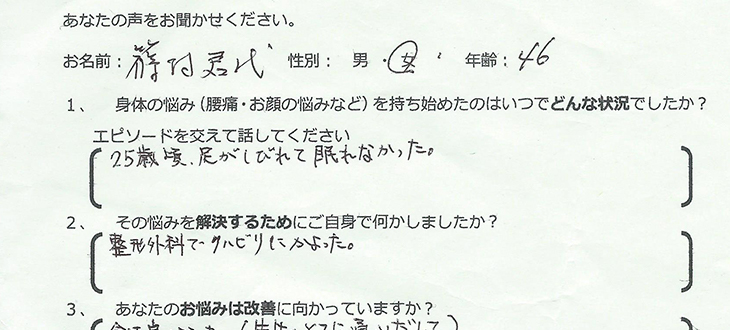 あなたの声をお聞かせください。
お名前： 篠村君代 性別： 男 ・ 女 ・ 年齢： 46
１、 身体の悩み（腰痛・お顔の悩みなど）を持ち始めたのはいつでどんな状況でしたか？
エピソードを交えて話してください
25歳頃、足がしびれて眠れなかった。
２、 その悩みを解決するためにご自身で何かしましたか？
整形外科でリハビリにかよった。
３、 あなたのお悩みは改善に向かっていますか？